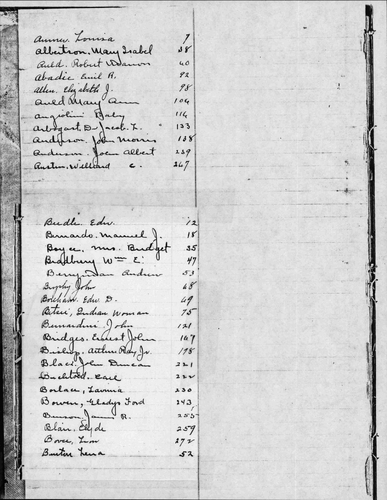 Louisa 9
Albertson, Mary Isabel 38
Auld, Robert 60
Abadie Emil R. 92
Allen, Elizabeth J. 98
Auld Mary Ann 104
Angiolini Baby 116
Arbogast, Dr Jacob L. 133
Anderson, John Morris 138
Anderson, John Albert 239
Austin, Willard C. 267
Beedle Edw. 12
Bernardo, Manuel J. 18
Boyce, Mrs. Bridget 35
Bradbury Wm E. 47
Berry, Dan Andrew 53
Brophy John 68
Edw D. 69
Indian Woman 75
Bernardini, John 121
Bridges, Ernest John 167
Bishop, Arthur Ray Jr. 198
John Duncan 221
Carl 222
Lavinia 230
Bowen, Gladys Ford 243
Benson, James R. 255
Blair, Clyde 259
272
Lena 52